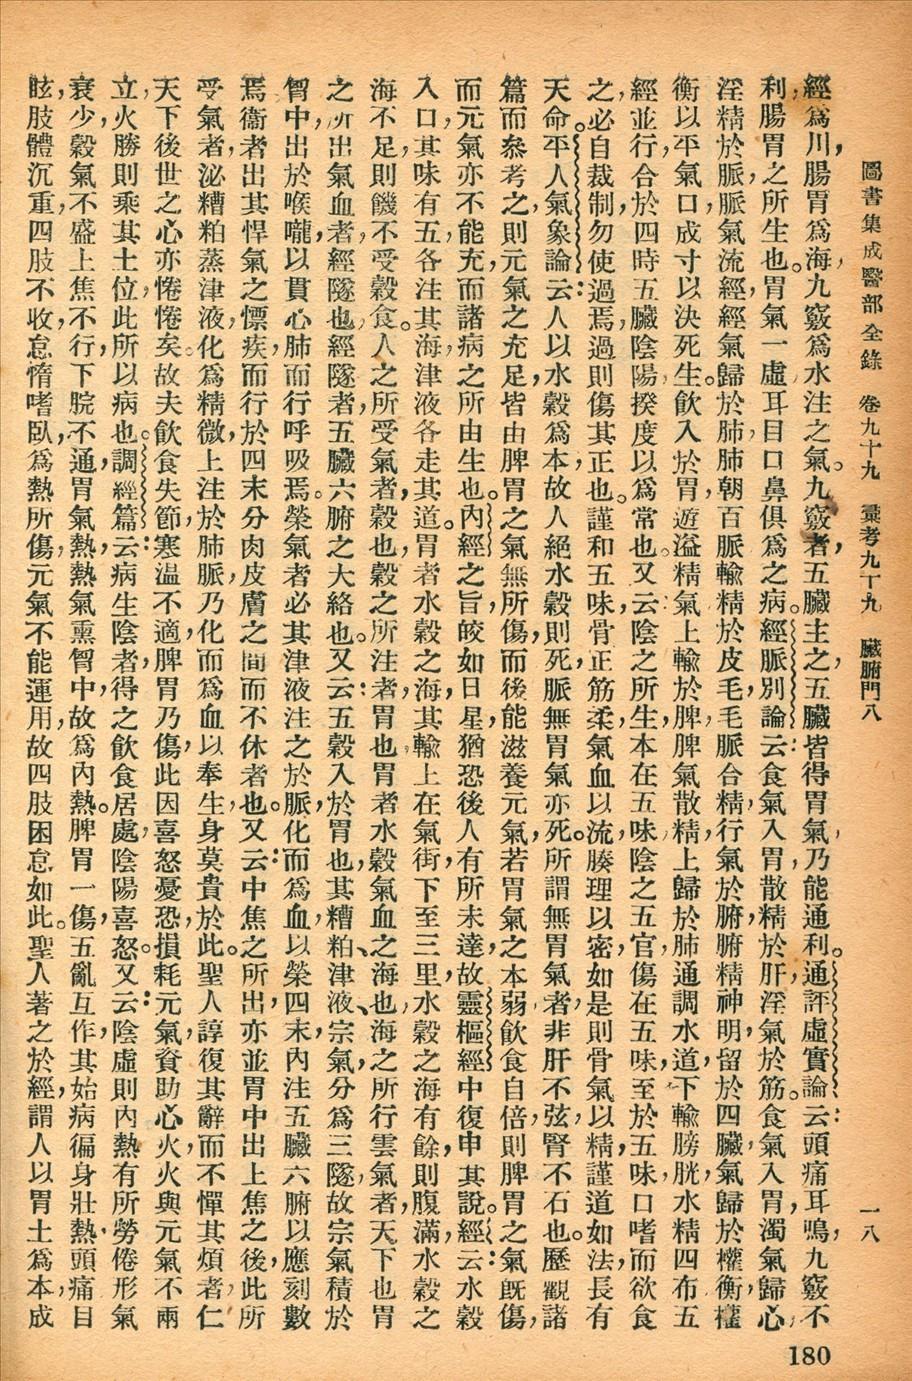 圖書集成醫部全錄　卷九十九　彙考九十九　臟腑門八　一八
經爲川，腸胃爲海，九竅爲水注之氣。九竅者，五臟主之，五臟皆得胃氣，乃能通利。通評虛實論云：頭痛耳鳴，九竅不
利，腸胃之所生也。胃氣一虛，耳目口鼻俱爲之病。經脈別論云：食氣入胃，散精於肝，淫氣於筋。食氣入胃，濁氣歸心，
淫精於脈，脈氣流經，經氣歸於肺，肺朝百脈，輸精於皮毛，毛脈合精，行氣於腑，腑精神明，留於四臟，氣歸於權衡，權
衡以平，氣口成寸，以決死生。飲入於胃，遊溢精氣，上輸於脾，脾氣散精，上歸於肺，通調水道，下輸膀胱，水精四布，五
經並行，合於四時五臟陰陽，揆度以爲常也。又云：陰之所生，本在五味，陰之五官，傷在五味，至於五味，口嗜而欲食
之，必自裁制，勿使過焉，過則傷其正也。謹和五味，骨正筋柔，氣血以流，腠理以密，如是則骨氣以精，謹道如法，長有
天命。平人氣象論云：人以水穀爲本，故人絕水穀則死，脈無胃氣亦死。所謂無胃氣者，非肝不弦，腎不石也。歷觀諸
篇而叅考之，則元氣之充足，皆由脾胃之氣無所傷，而後能滋養元氣，若胃氣之本弱，飲食自倍，則脾胃之氣旣傷，
而元氣亦不能充，而諸病之所由生也。內經之旨，皎如日星，猶恐後人有所未達，故靈樞經中復申其說。經云：水穀
入口，其味有五，各注其海，津液各走其道。胃者水穀之海，其輸上在氣街，下至三里，水穀之海有餘則腹滿，水穀之
海不足，則饑不受穀食。人之所受氣者，穀也，穀之所注者，胃也，胃者水穀氣血之海也，海之所行雲氣者，天下也，胃
之所出氣血者，經隧也，經隧者，五臟六腑之大絡也。又云：五穀入於胃也，其糟粕、津液、宗氣，分爲三隧，故宗氣積於
胷中，出於喉嚨，以貫心肺而行呼吸焉。榮氣者，必其津液，注之於脈，化而爲血，以榮四末，內注五臟六腑，以應刻數
焉。衞者，出其悍氣之慓疾，而行於四末分肉皮膚之間而不休者也。又云：中焦之所出，亦並胃中，出上焦之後，此所
受氣者，泌糟粕，蒸津液，化爲精微，上注於肺脈，乃化而爲血，以奉生身，莫貴於此。聖人諄復其辭而不憚其煩者，仁
天下後世之心亦惓惓矣。故夫飲食失節，寒溫不適，脾胃乃傷，此因喜怒憂恐，損耗元氣，資助心火，火與元氣不兩
立，火勝則乘其土位，此所以病也。調經篇云：病生陰者，得之飲食居處，陰陽喜怒。又云：陰虛則內熱，有所勞倦，形氣
衰少，穀氣不盛，上焦不行，下脘不通，胃氣熱，熱氣熏胷中，故爲內熱。脾胃一傷，五亂互作，其始病徧身壯熱，頭痛目
眩，肢體沉重，四肢不收，怠惰嗜臥，爲熱所傷，元氣不能運用，故四肢困怠如此。聖人著之於經，謂人以胃土爲本，成
180